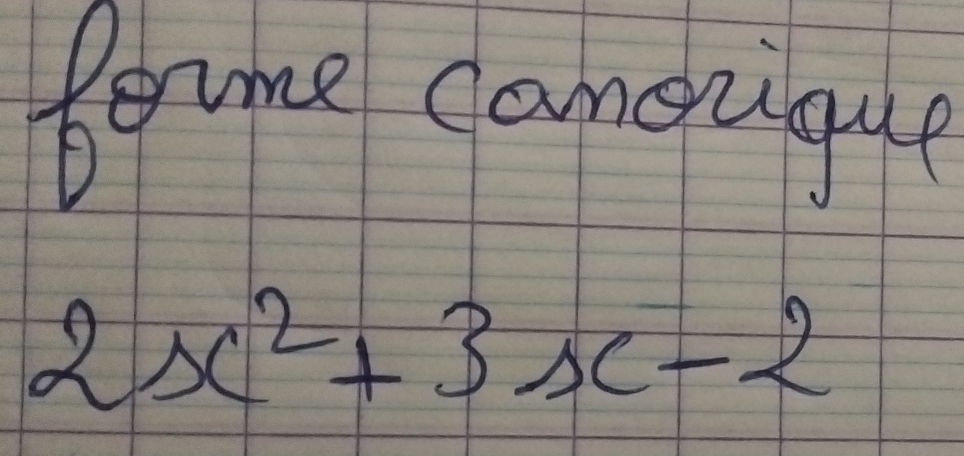 forme canonique
2x²+3x-2